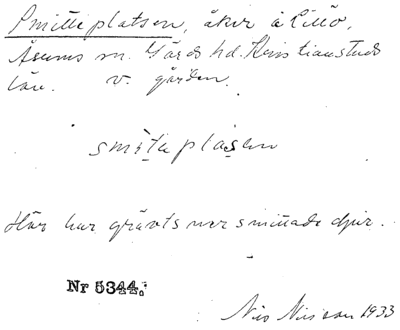 Smitteplatsen, åker å Lillö,
Åsums sn. Gärds hd. Kristianstads
län. v. gården.
smitaplásen
Här har grävts ner smittade djur.
Nr 5344.
Nils Nilsson 1933